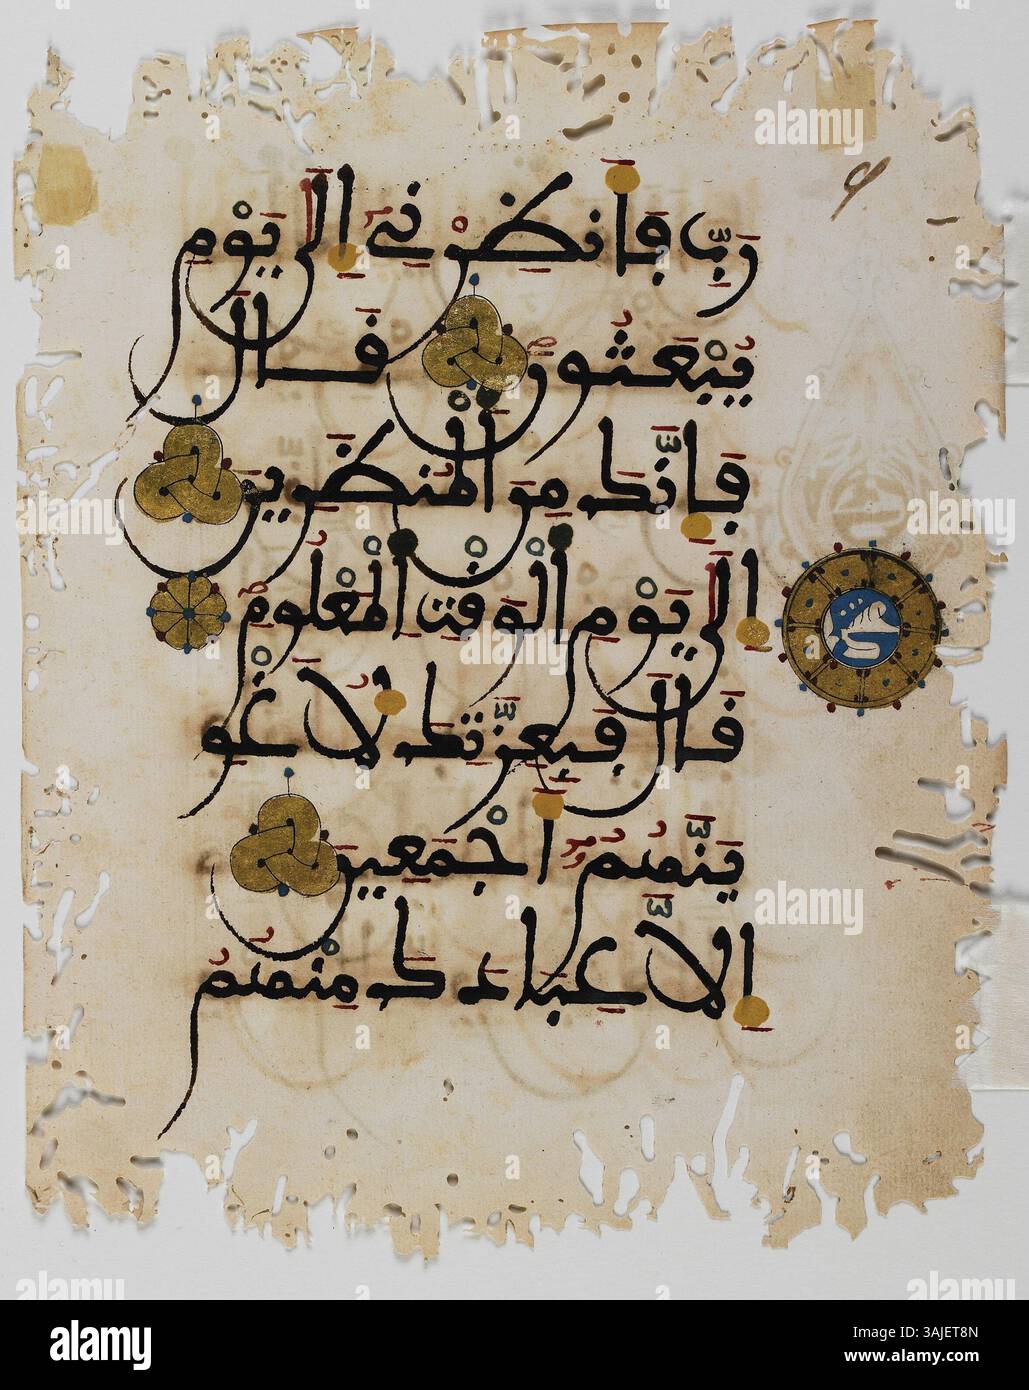 رَبِّ فَأَنظِرْنِي إِلَىٰ يَوْمِ
يُبْعَثُونَ قَالَ
فَإِنَّكَ مِنَ ٱلْمُنظَرِينَ
إِلَىٰ يَوْمِ ٱلْوَقْتِ ٱلْمَعْلُومِ
قَالَ فَبِعِزَّتِكَ لَأُغْوِ
يَنَّهُمُ أَجْمَعِينَ
إِلَّا عِبَادَكَ مِنْهُمُ
alamy
Image ID: 3AJET8N
www.alamy.com